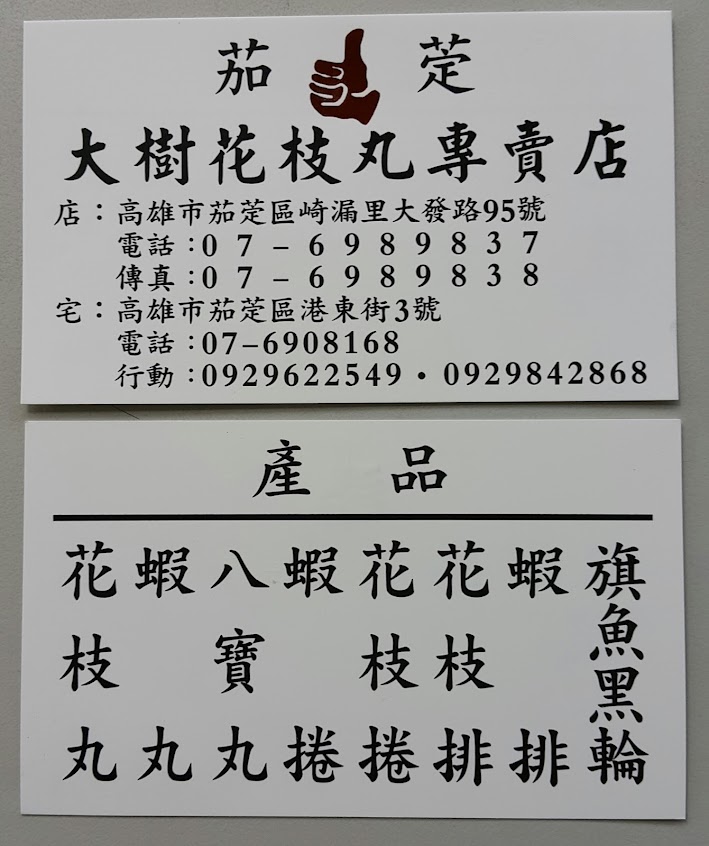 茄 萣
大樹花枝丸專賣店
店：高雄市茄萣區崎漏里大發路95號
電話：07-6989837
傳真：07-6989838
宅：高雄市茄萣區港東街3號
電話：07-6908168
行動：0929622549・0929842868
產 品
花枝丸
蝦丸
八寶丸
蝦捲
花枝捲
花枝排
蝦排
旗魚黑輪